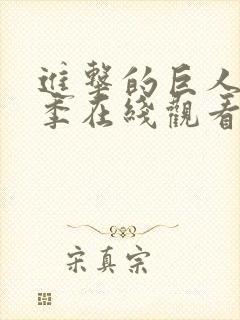 進擊的巨人
季在綫觀看
宋真宗